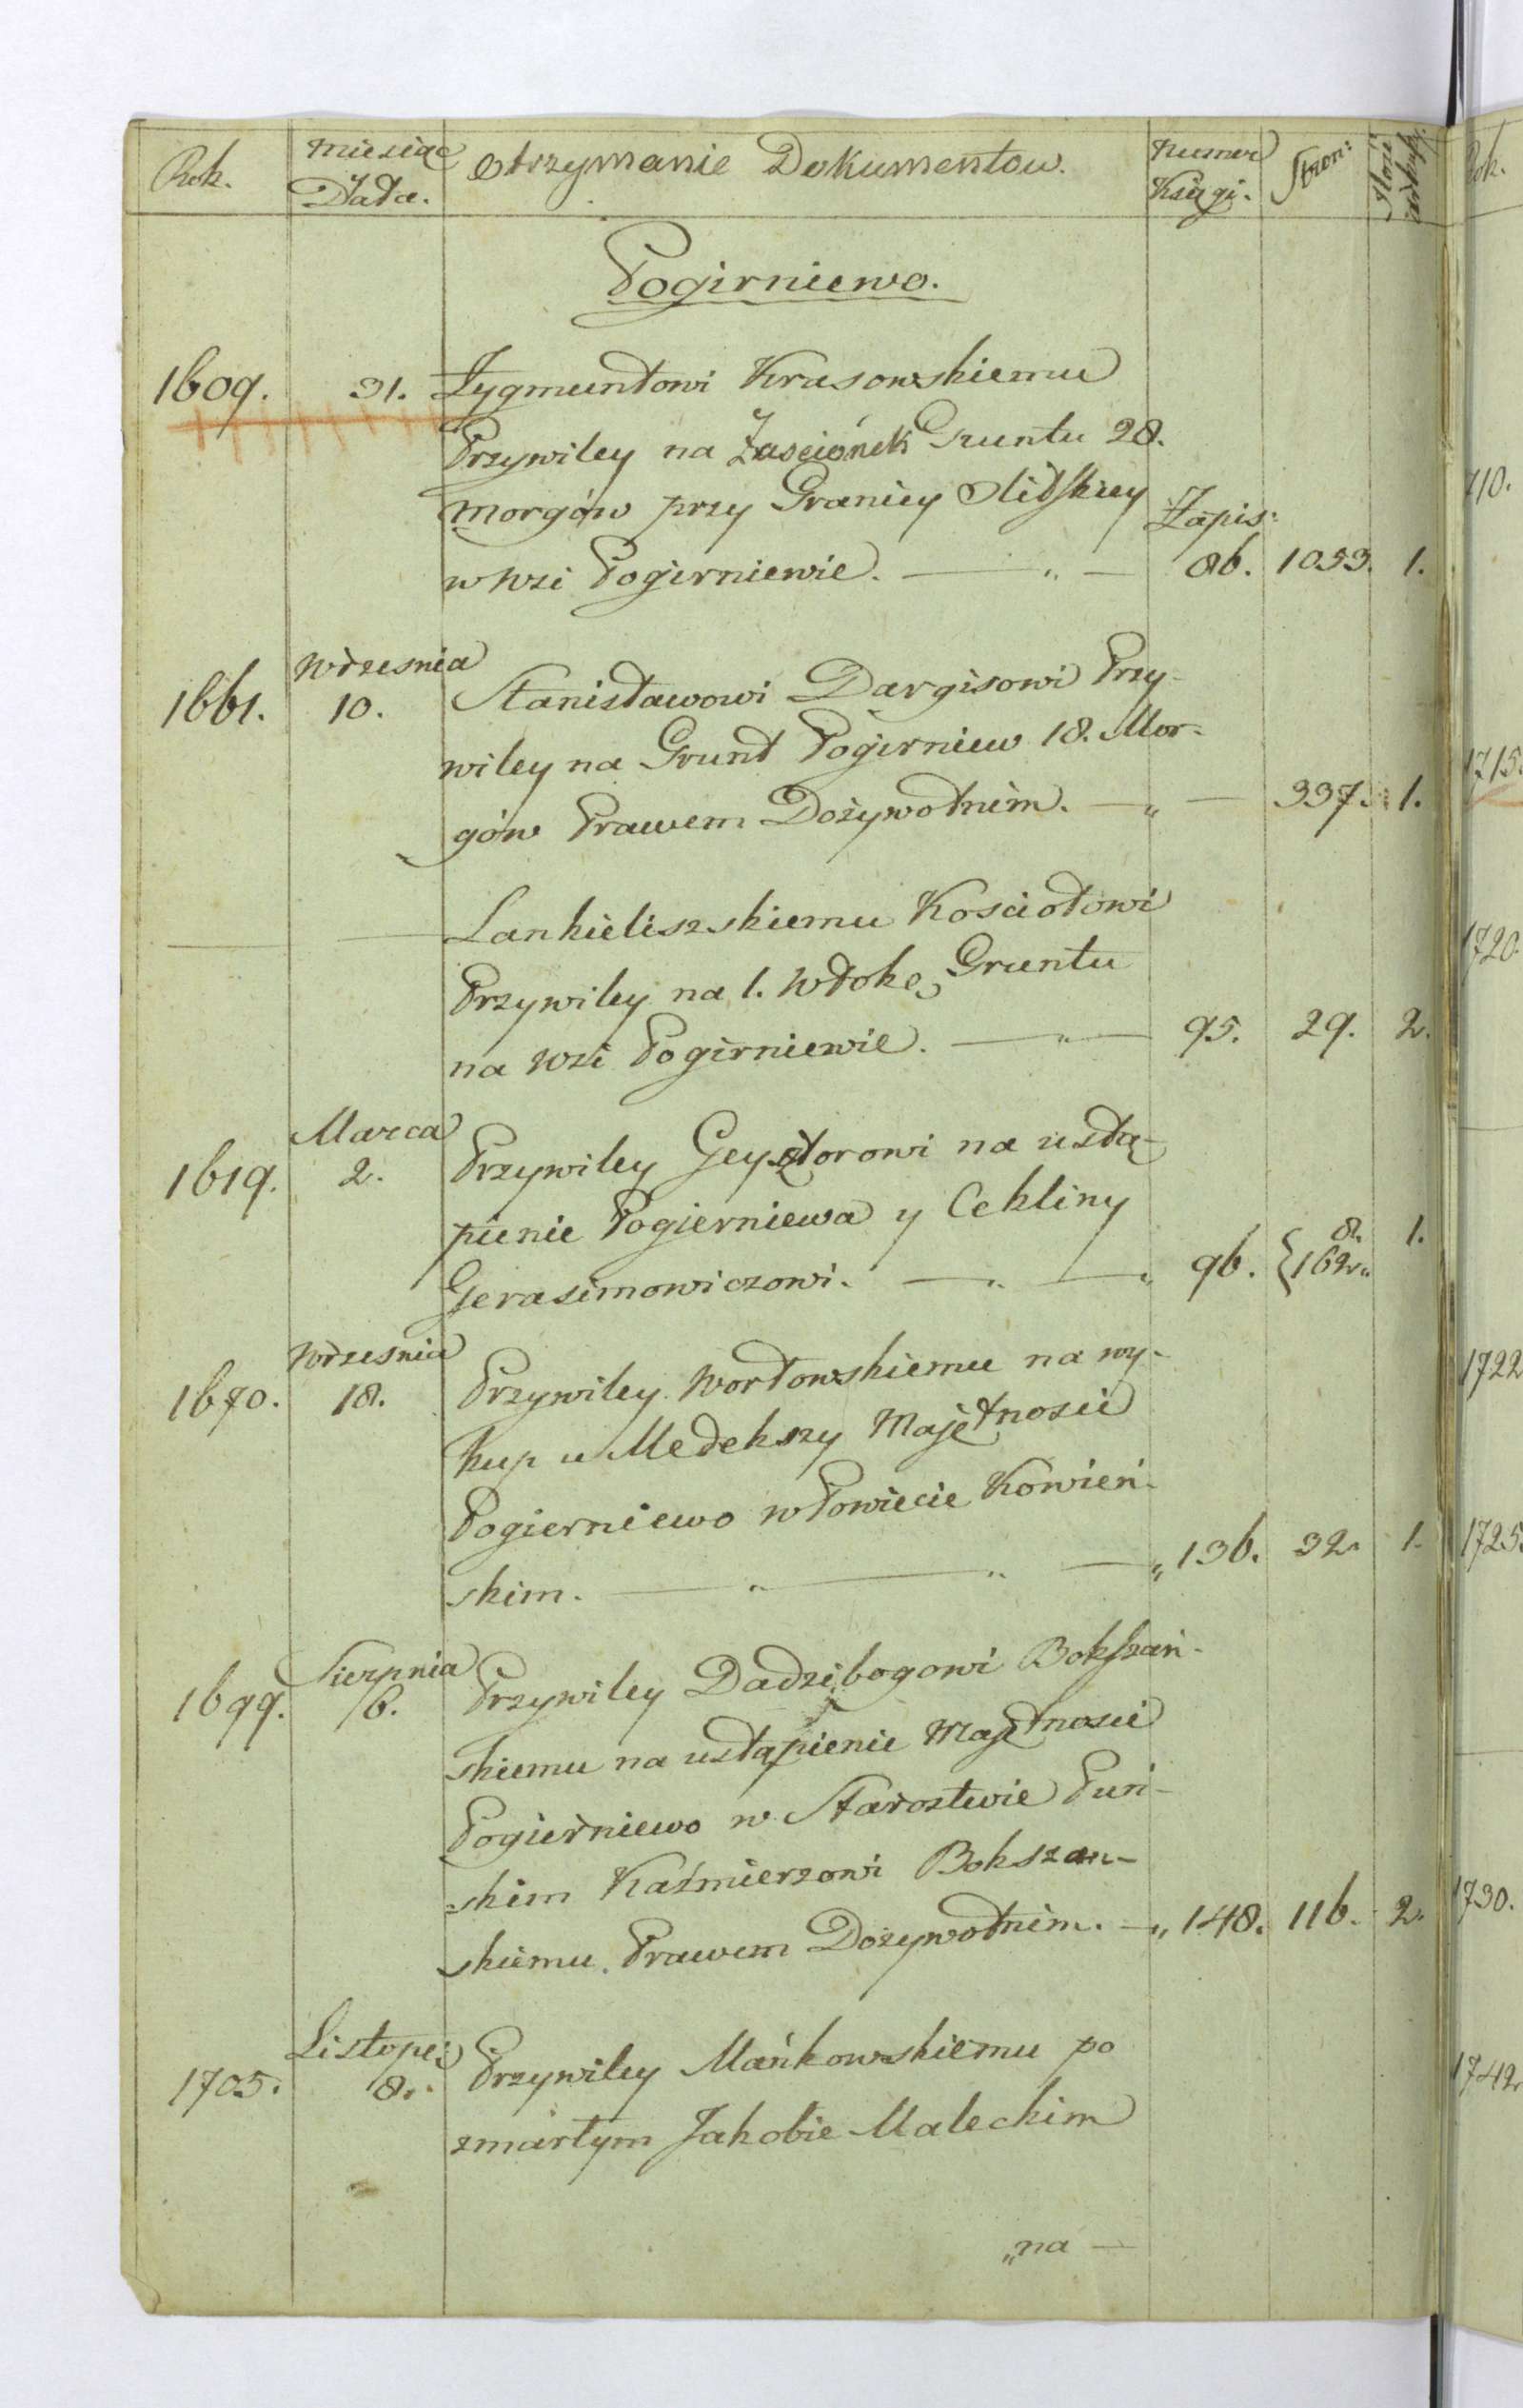 Rok. Miesiąc Data. Otrzymanie Dokumentow. Numer Księgi. Stron: Ilość
Pogirniewo.
1609. 31. Zygmuntowi Krasowskiemu
Przywiley na Zascianek Gruntu 28.
morgów przy Granicy Olitskiey Zapis:
w Wsi Pogirniewie. — „ — 86. 1053. 1.
Wrzesnia
1661. 10. Stanisławowi Dargisowi Przy-
wiley na Grunt Pogirniew 18. Mor-
gów Prawem Dożywotnim. — „ — 337. 1.
— — Lankieliszskiemu Kosciołowi
Przywiley na 1. Włokę Gruntu
na Wsi Pogirniewie. — „ — 95. 29. 2.
Marca
1619. 2. Przywiley Geysztorowi na ustą-
pienie Pogierniewa y Cekliny
Gerasimowiczowi. — „ — „ 96. { 8. 162. 1.
Wrzesnia
1670. 18. Przywiley Wortowskiemu na wy-
kup u Medekszy Majętnosci
Pogierniewo w Powiecie Kowień-
skim. — „ — „ — „ 136. 32. 1.
Sierpnia
1699. 6. Przywiley Dadzibogowi Bokszań-
skiemu na ustąpienie Majętnosci
Pogierniewo w Starostwie Puń-
skim Kaźmierzowi Bokszan-
skiemu Prawem Dożywotnim. — „ 148. 116. 2.
Listopa:
1705. 8. Przywiley Mańkowskiemu po
zmarłym Jakobie Maleckim
„na —
Rok.
710.
1715.
1720.
1722
1725.
1730.
1742.